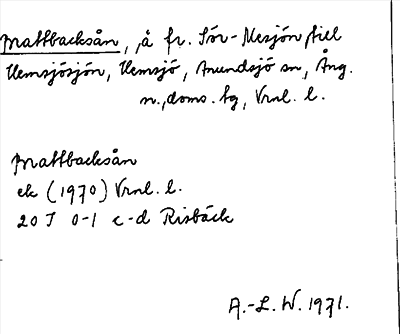 Mattbacksån, å fr. Sör-Mesjön till
Hemsjösjön, Hemsjö, Anundsjö sn, Ång.
n., doms. tg, Vrnl. l.
Mattbacksån
ek (1970) Vrnl. l.
20 J 0-1 c-d Risbäck
A.-L. W. 1971.